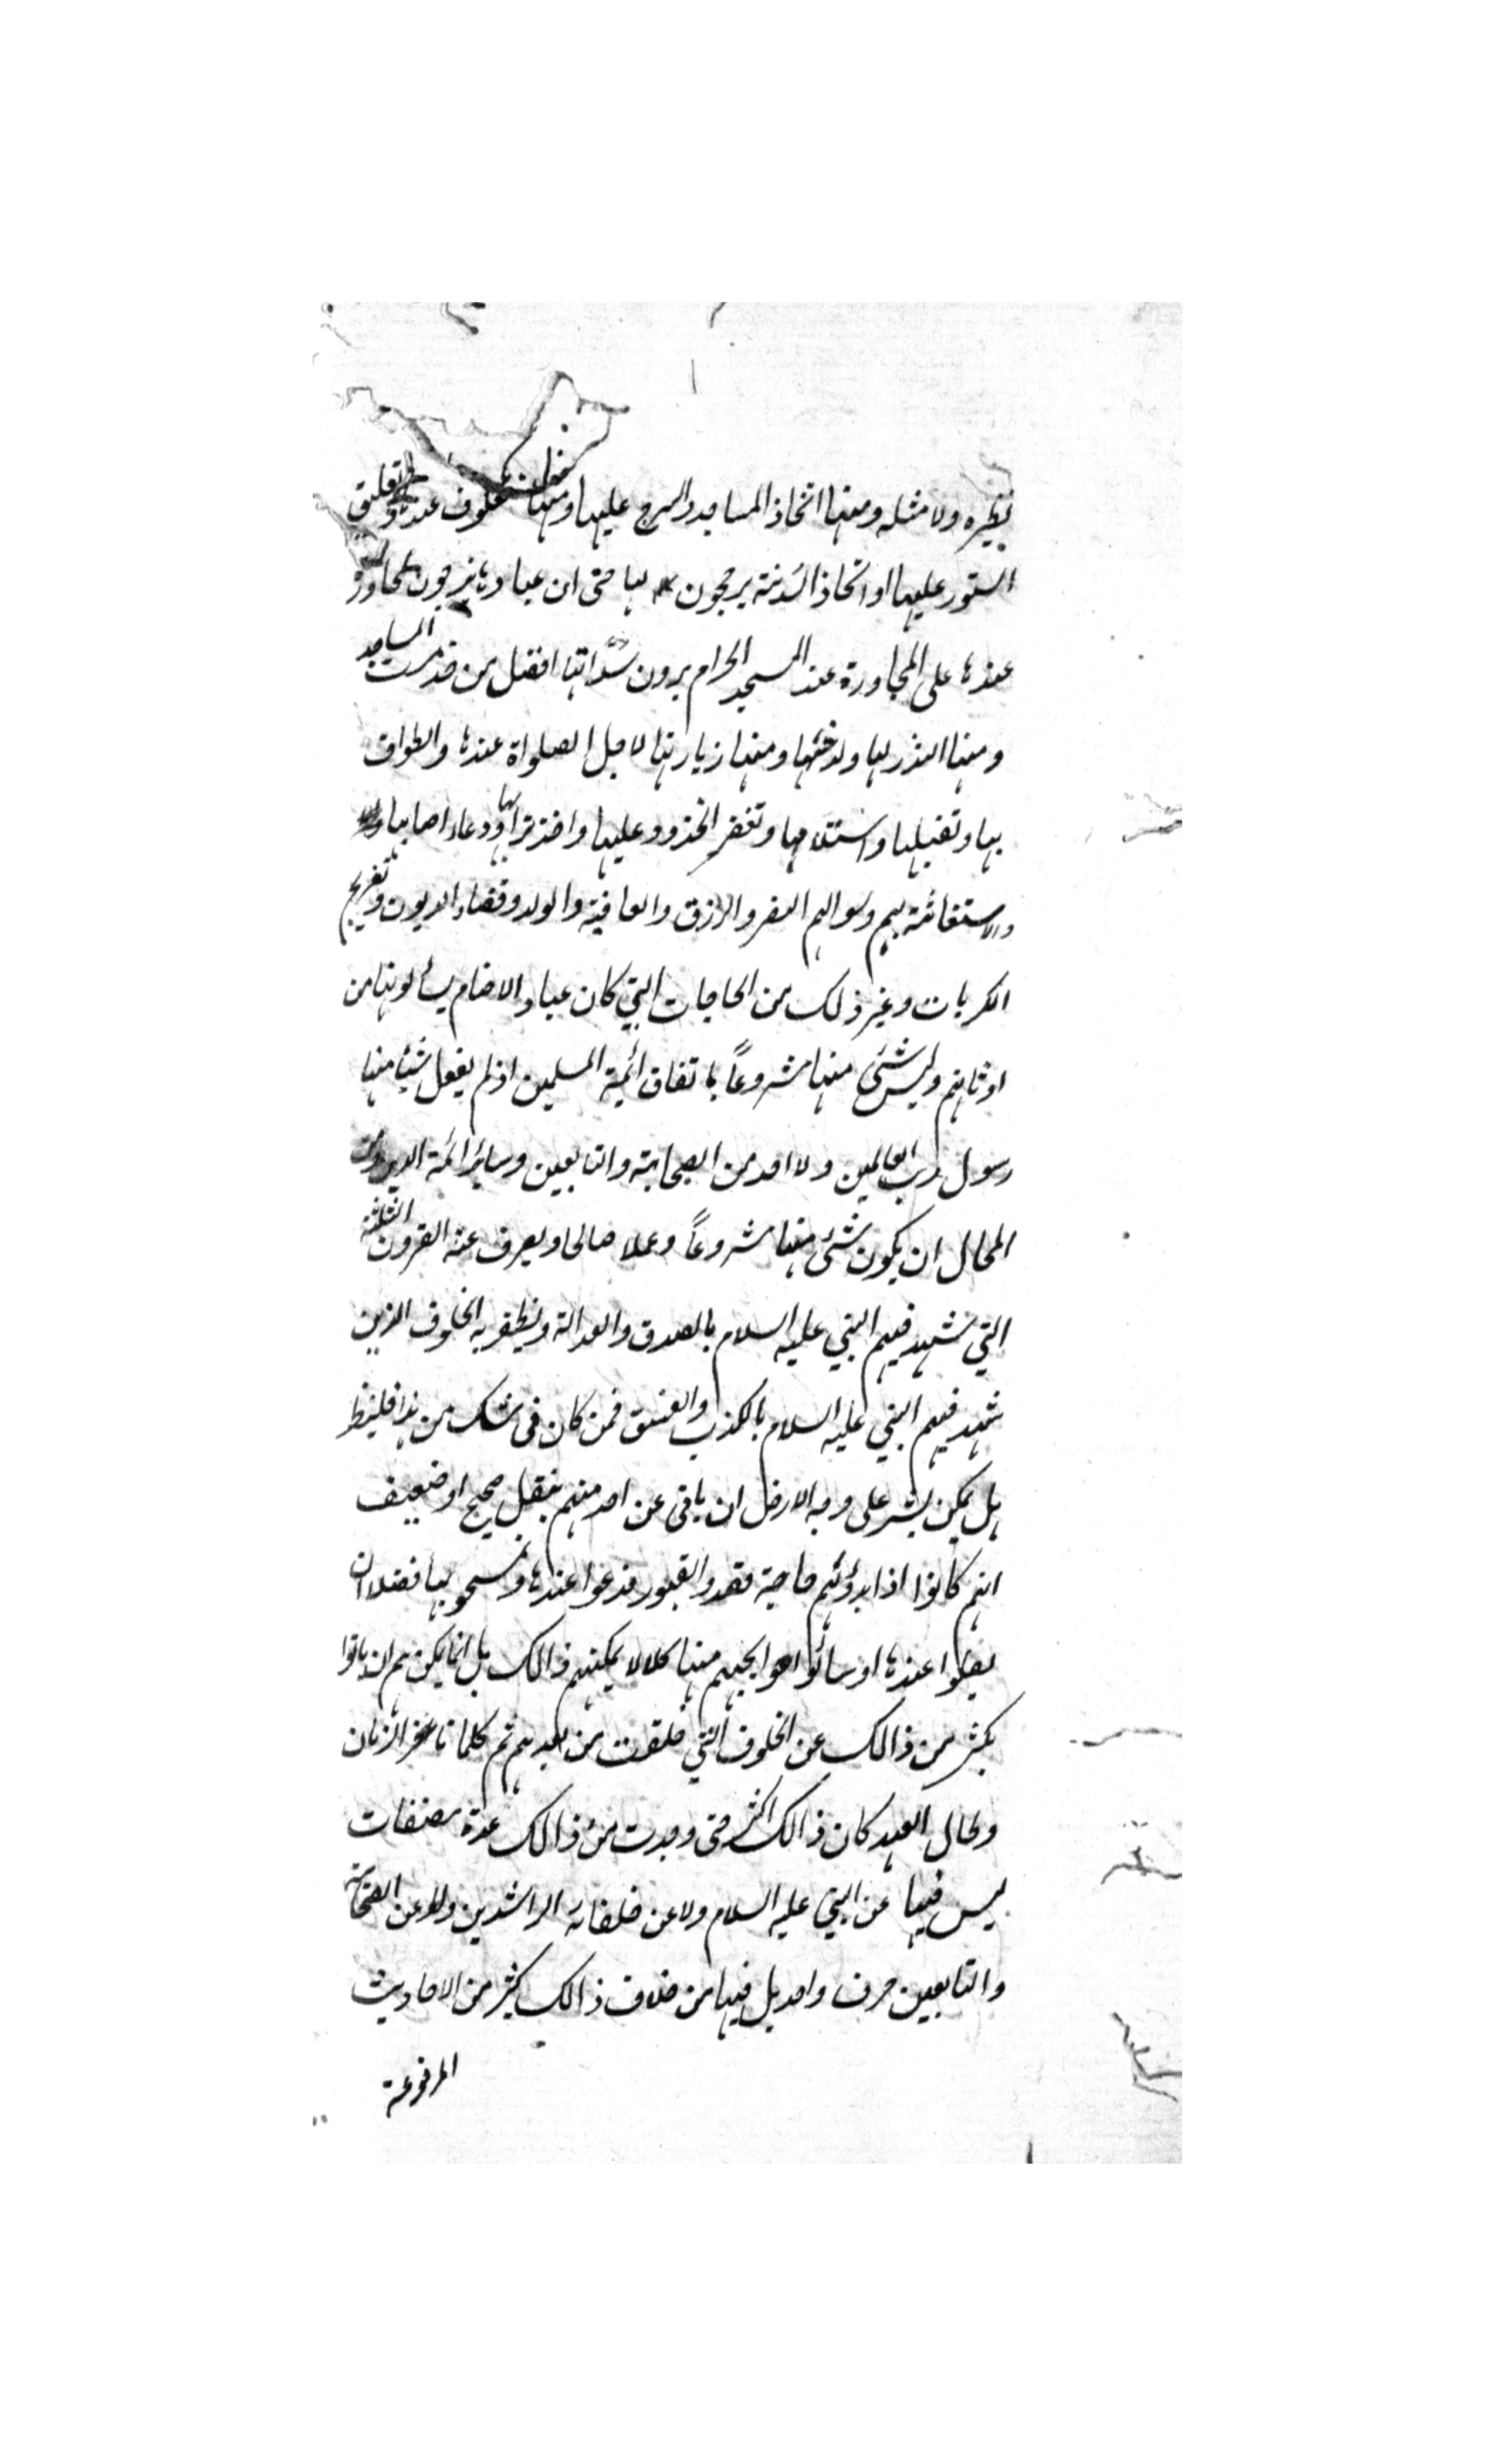 نظيره ولا مثله ومنها اتخاذ المساجد والسرج عليها ومنها العكوف عندها وتعليق
الستور عليها او اتخاذ السدنة يرجحون لها حتى ان عبادها يرجحون المجاورة
عندها على المجاورة عند المسجد الحرام يرون سدانتها افضل من خدمت المساجد
ومنها النذر لها ولسدنتها ومنها زيارتها لاجل الصلواة عندها والطواف
بها وتقبيلها واستلامها وتعفر الخدود عليها واخذ ترابها ودعاء اصحابها
والاستغاثة بهم وسوالهم النصر والرزق والعافية والولد وقضاء الديون وتفريج
الكربات وغير ذلك من الحاجات التي كان عباد الاصنام يسألونها من
اوثانهم وليس شئ منها مشروعاً باتفاق أئمة المسلمين اذ لم يفعل شيئا منها
رسول رب العالمين ولا احد من الصحابة والتابعين وسائر ائمة الدين ومن
المحال ان يكون شئ منها مشروعاً وعملا صالحا ويصرف عنه القرون الثلثة
التي شهد فيهم النبي عليه السلام بالصدق والعدالة ويظفر به الخلوف الذين
شهد فيهم النبي عليه السلام بالكذب والفسق فمن كان في شك من هذا فلينظر
هل يمكن بشر على وجه الارض ان ياتى عن احد منهم بنقل صحيح او ضعيف
انهم كانوا اذا بدؤلهم حاجة قصدو القبور فدعوا عندها وتمسحو بها فضلا ان
يصلوا عندها او سألوا حوايجهم منها كلا لا يمكنهم ذالك بل انما يمكن لهم ان ياتوا
بكثير من ذالك عن الخلوف التي خلفت من بعدهم ثم كلما تاخر الزمان
وطال العهد كان ذالك اكثر حتى وجدت من ذالك عدة مصنفات
ليس فيها عن النبي عليه السلام ولا عن خلفائه الراشدين ولا عن الصحابة
والتابعين حرف واحد بل فيها من خلاف ذالك كثير من الاحاديث
المرفوعة